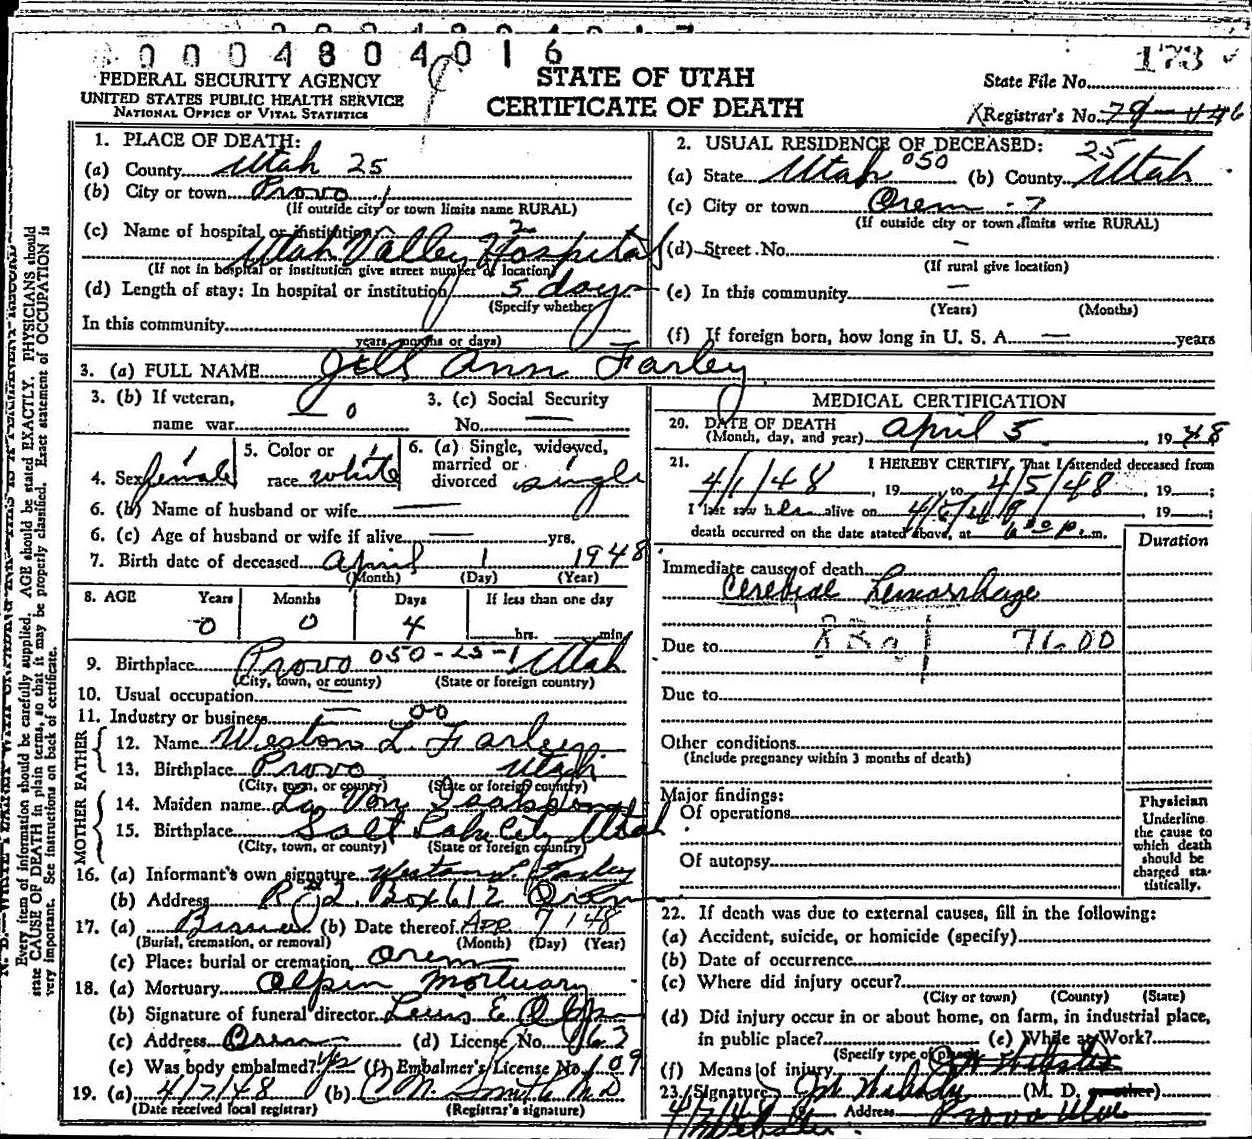 0 0 0 4 8 0 4 0 1 6
173
FEDERAL SECURITY AGENCY
UNITED STATES PUBLIC HEALTH SERVICE
NATIONAL OFFICE OF VITAL STATISTICS
STATE OF UTAH
CERTIFICATE OF DEATH
State File No.
Registrar's No. 79
1. PLACE OF DEATH:
(a) County Utah 25
(b) City or town Provo 1
(If outside city or town limits name RURAL)
(c) Name of hospital or institution: 2
Utah Valley Hospital
(If not in hospital or institution give street number or location)
(d) Length of stay: In hospital or institution 5 days
(Specify whether
In this community
years, months or days)
2. USUAL RESIDENCE OF DECEASED:
(a) State Utah 050 (b) County 25 Utah
(c) City or town Orem - 7
(If outside city or town limits write RURAL)
(d) Street No. —
(If rural give location)
(e) In this community —
(Years) (Months)
(f) If foreign born, how long in U. S. A. — years
3. (a) FULL NAME Jill Ann Farley
3. (b) If veteran,
name war — 0
3. (c) Social Security
No. —
4. Sex female 1
5. Color or
race white 1
6. (a) Single, widowed,
married or
divorced single
6. (b) Name of husband or wife —
6. (c) Age of husband or wife if alive — yrs.
7. Birth date of deceased April 1 1948
(Month) (Day) (Year)
8. AGE Years Months Days If less than one day
0 0 4 hrs. min.
9. Birthplace Provo 050-25-1 Utah
(City, town, or county) (State or foreign country)
10. Usual occupation —
11. Industry or business — 00
FATHER
12. Name Weston L. Farley
13. Birthplace Provo Utah
(City, town, or county) (State or foreign country)
MOTHER
14. Maiden name La Von
15. Birthplace Salt Lake City Utah
(City, town, or county) (State or foreign country)
16. (a) Informant's own signature Weston L Farley
(b) Address R #2 Box 612 Orem
17. (a) Burial (b) Date thereof Apr 7 / 48
(Burial, cremation, or removal) (Month) (Day) (Year)
(c) Place: burial or cremation Orem
18. (a) Mortuary Olpin Mortuary
(b) Signature of funeral director
(c) Address Orem (d) License No. 163
(e) Was body embalmed? yes (f) Embalmer's License No. 109
19. (a) 4/7/48 (b) C M. Smith M.D
(Date received local registrar) (Registrar's signature)
MEDICAL CERTIFICATION
20. DATE OF DEATH
(Month, day, and year) April 5, 1948
21. I HEREBY CERTIFY, That I attended deceased from
4/1/48, 19 to 4/5/48, 19 ;
I last saw her alive on 4/5/48, 19 ;
death occurred on the date stated above, at 6:30 p. m.
Duration
Immediate cause of death
Cerebral hemorrhage
Due to 7600
Due to
Other conditions
(Include pregnancy within 3 months of death)
Major findings:
Of operations
Of autopsy
Physician
Underline
the cause to
which death
should be
charged sta-
tistically.
22. If death was due to external causes, fill in the following:
(a) Accident, suicide, or homicide (specify)
(b) Date of occurrence
(c) Where did injury occur?
(City or town) (County) (State)
(d) Did injury occur in or about home, on farm, in industrial place,
in public place? (e) While at Work?
(Specify type of place)
(f) Means of injury
23. Signature (M. D. or other)
4/7/48 Address Provo Utah
Webster
Every item of information should be carefully supplied. AGE should be stated EXACTLY. PHYSICIANS should
state CAUSE OF DEATH in plain terms, so that it may be properly classified. Exact statement of OCCUPATION is
very important. See instructions on back of certificate.